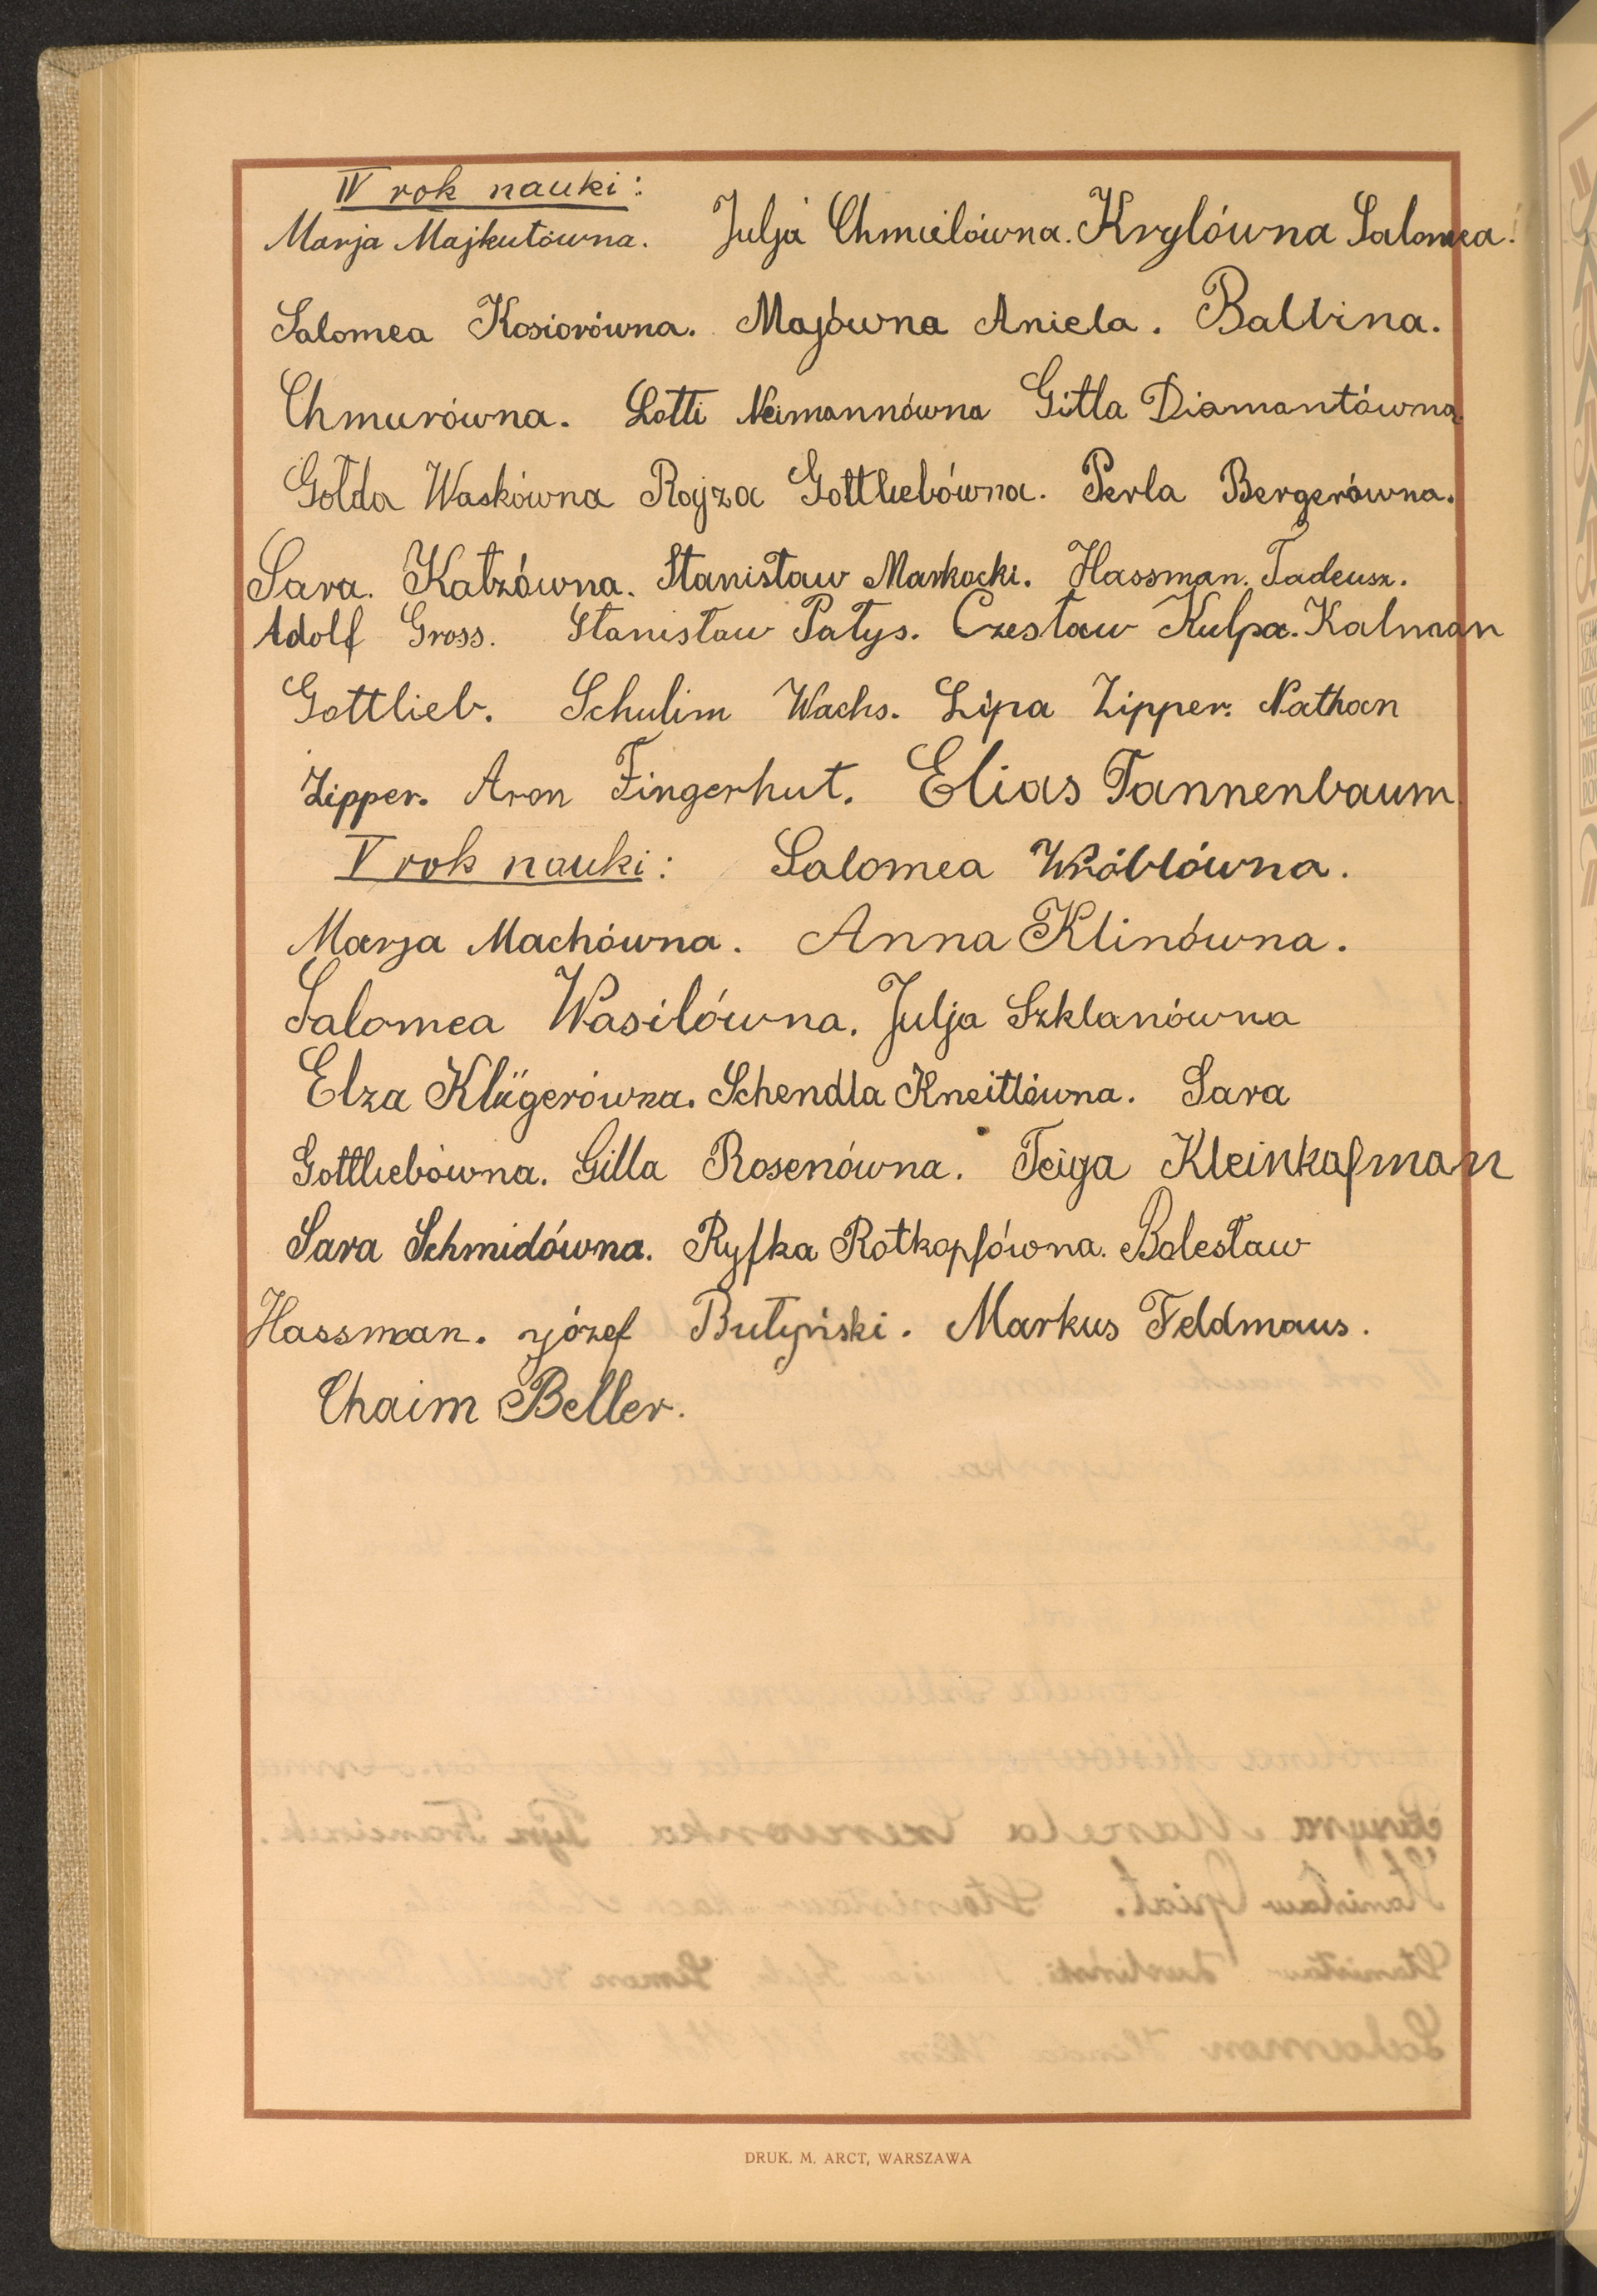 IV rok nauki:
Marja Majkutówna. Julja Chmielówna. Krylówna Salomea.
Salomea Kosiorówna. Majówna Aniela. Balbina.
Chmurówna. Lotti Neimannówna Gitla Diamantówna.
Gołda Waskówna Rojza Gottliebówna. Perla Bergerówna.
Sara. Katzówna. Stanisław Markocki. Hassman. Tadeusz.
Adolf Gross. Stanisław Patys. Czesław Kulpa. Kalman
Gottlieb. Schulim Wachs. Lipa Zipper. Nathan
Zipper. Aron Fingerhut. Elias Tannenbaum
V rok nauki: Salomea Wróblówna.
Marja Machówna. Anna Klinówna.
Salomea Wasilówna. Julja Szklanówna
Elza Klügerówna. Schendla Kneitlówna. Sara
Gottliebówna. Gilla Rosenówna. Feiga Kleinkafman
Sara Schmidówna. Ryfka Rotkopfówna. Bolesław
Hassman. józef Butyński. Markus Feldmaus.
Chaim Beller.
DRUK. M. ARCT, WARSZAWA